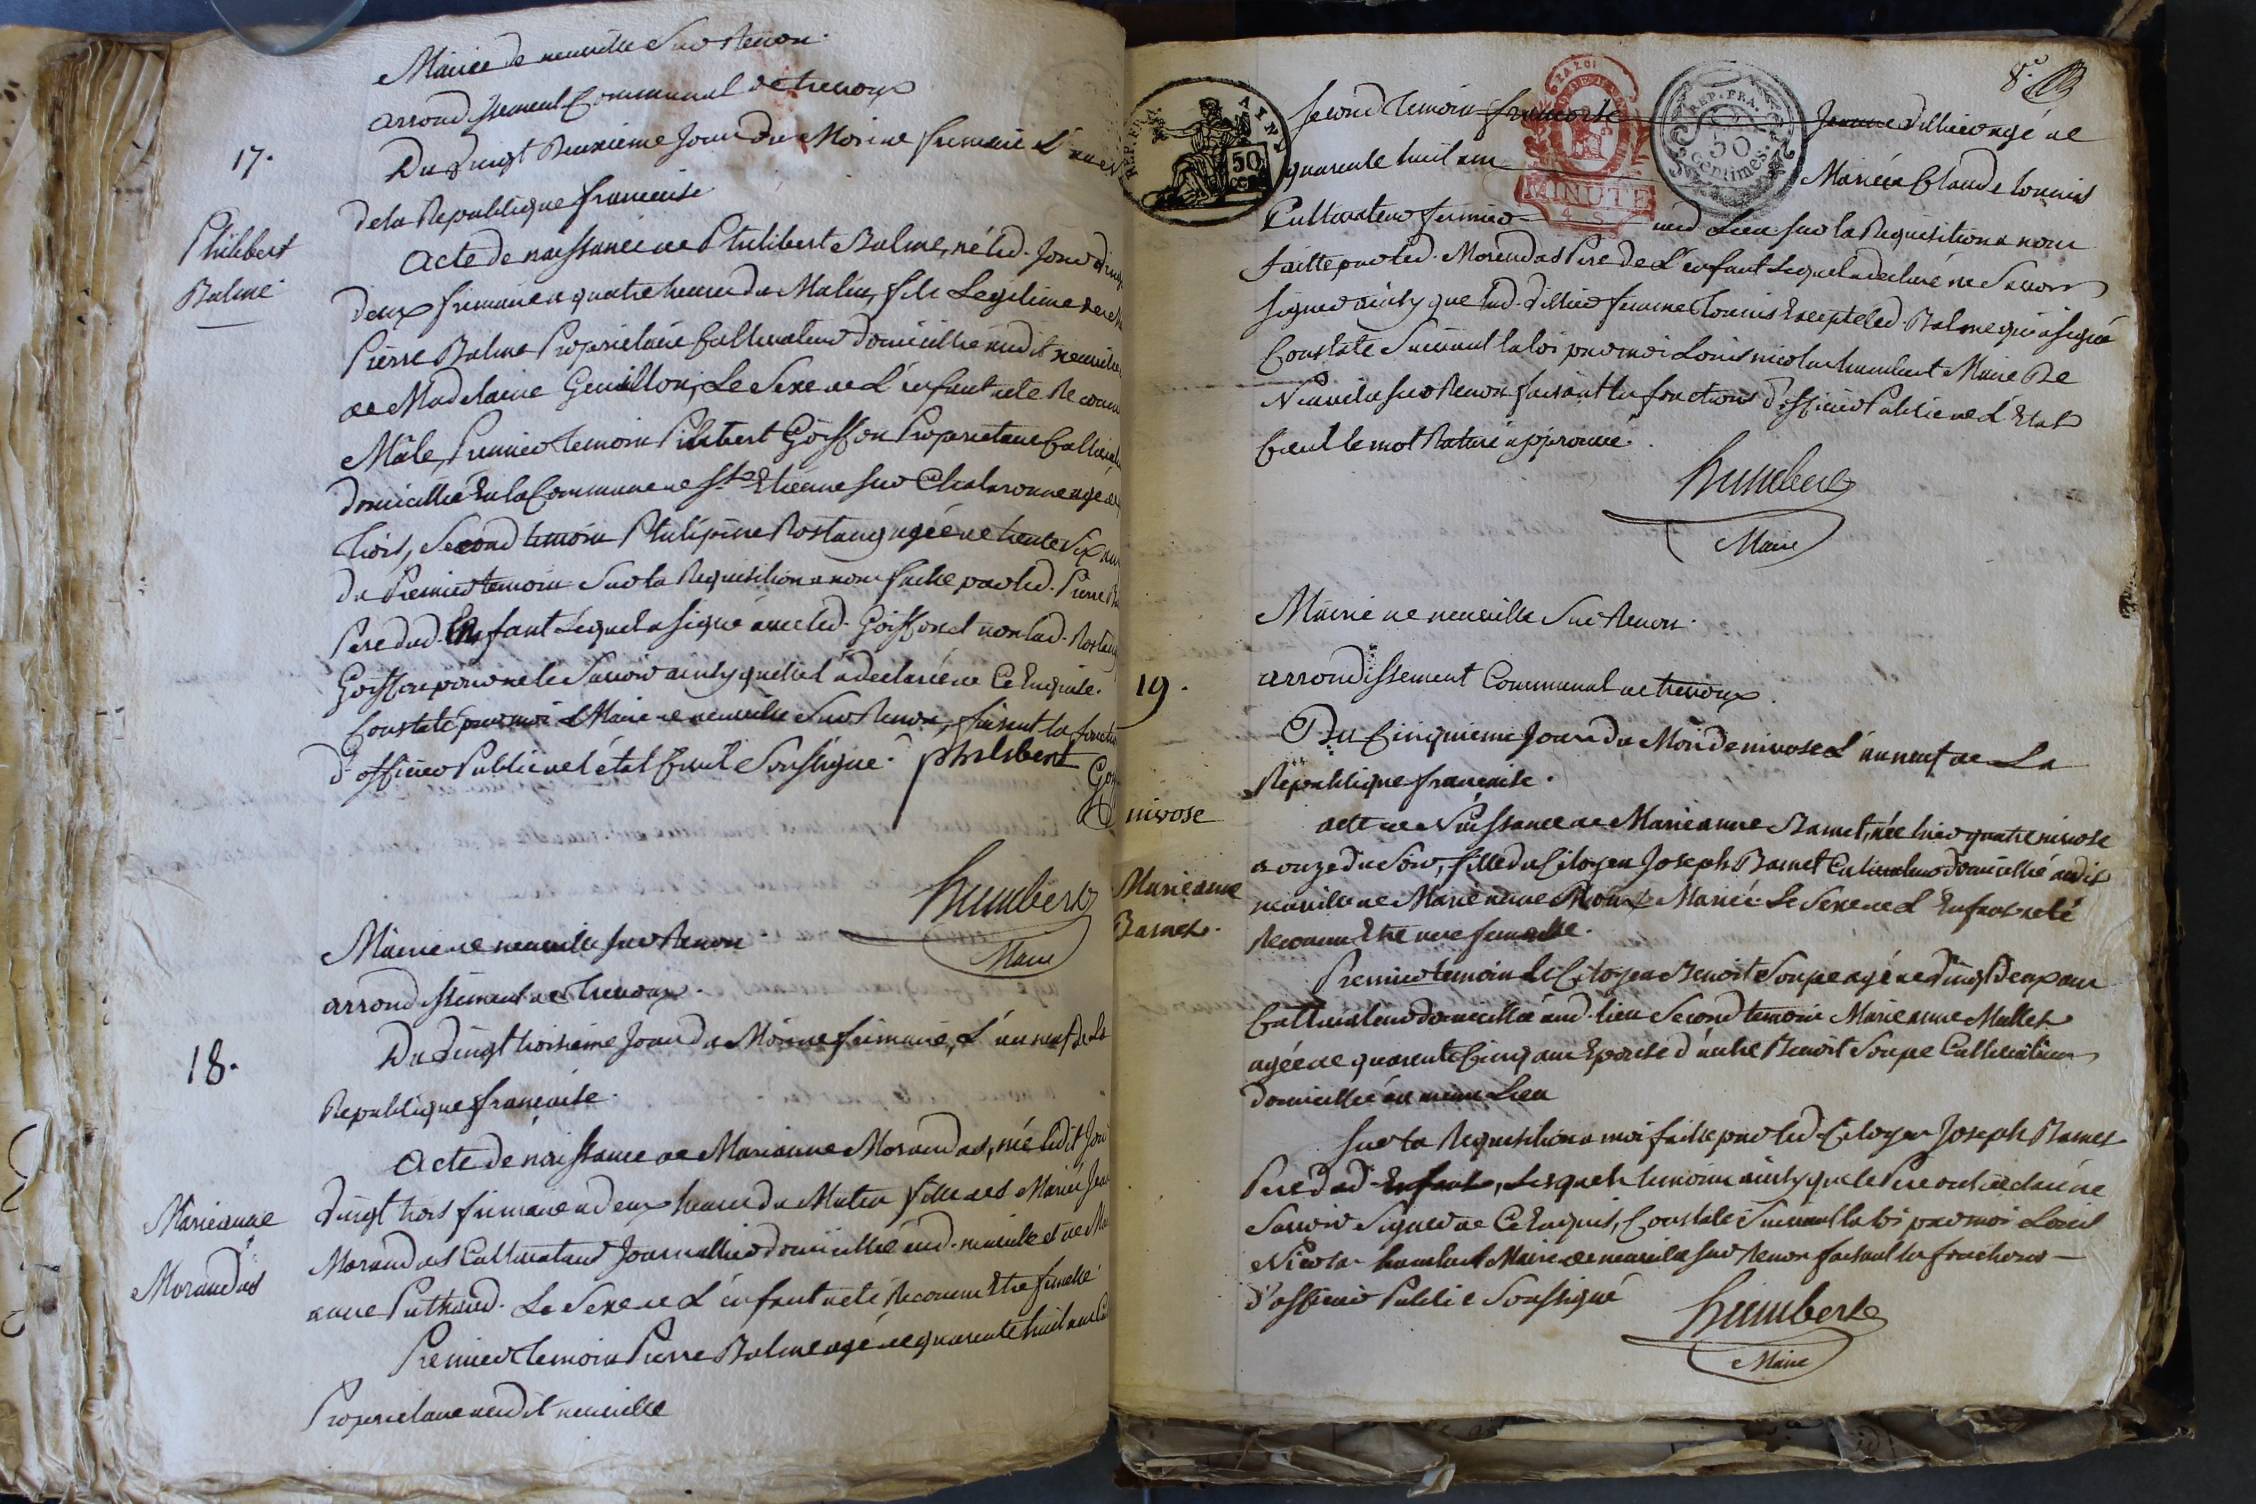 Mairie de neuville Sur Renon.
arrondissement Communal de trevoux
17.
Du vingt Deuxieme Jour du Mois de frimaire L'an
de la Republique francaise
Philibert
Balme
Acte de naissance de Philibert Balme, né led. Jour vingt
deux frimaire a quatre heures du Matin, fils Legitime de
Pierre Balme Proprietaire Cultivateur domicillié audit neuville
de Madelaine Genillon, Le Sexe de L'enfant a été Reconnu
Mâle, Premier temoin Philibert Goiffon Proprietaire Cultivateur
domicillié En la Commune de St. Etienne sur Chalaronne agé de
trois, Second temoin Philipine Rostaing agée de trente Six ans
du Premier temoin Sur la Requisition a nous faite par led. Pierre
Pere dud. Enfant Lequel a signé avec led. Goiffon et non lad. Rostaing
Goiffon pour ne le Savoir ainsy quelle l'a declaré de Ce Enquise.
Constaté par moi Maire de neuville Sur Renon, faisant la fonction
d'officier Public de l'état Civil Soussigné. philibert
Humbert
Maire
Mairie de neuville sur Renon
arrondissement de trevoux.
18.
Du vingt troisieme Jour du Mois de frimaire, L'an neuf de La
Republique francaise.
Acte de naissance de Marianne Morandas, née ledit Jour
vingt trois frimaire a deux heures du Matin fille des Mariés Jean
Marieanne
Morandas
Morandas Cultivateur Journallier domicillié aud. neuville et de
anne Puthaud. Le Sexe de L'enfant a été Reconnu Etre femelle
Premier temoin Pierre Balme agé de quarante huit ans
Proprietaire audit neuville
8.e
REP. FRA.
AIN
50
CEN
MINUTE
REP. FRA.
50
Centimes.
second temoin francoise Jeanne dillier agé de
quarante huit ans Mariée a Claude tonnis
Cultivateur fermier aud Lieu sur la Requisition a nous
faitte par led. Morandas Pere de L'enfant Lequel a declaré ne Savoir
signer ainsy que lad. dillier femme tonnis Excepté led. Balme qui a signé
Constaté Suivant la loi par moi Louis nicolas humbert Maire De
Neuville sur Renon faisant les fonctions d'officier Public de L'Etat
Civil le mot Raturé approuvé.
Humbert
Maire
Mairie de neuville Sur Renon.
arrondissement Communal de trevoux.
19.
Du Cinquieme Jour du Mois de nivose L'an neuf de La
Republique francaise.
nivose
acte de Naissance de Marieanne Bamet, née hier quatre nivose
a onze du Soir, fille du Citoyen Joseph Bamet Cultivateur domicillié audit
Marieanne
Bamet.
neuville et de Marie anne Mariés. Le Sexe de L'Enfant a été
Reconnu Etre une femelle.
Premier temoin le Citoyen Benoit Soupe agé de vingt Deux ans
Cultivateur domicillié aud. lieu Second temoin Marieanne Mallet
agée de quarante Cinq ans Epouse d'autre Benoit Soupe Cultivateur
domicillié au meme Lieu
sur la Requisition a moi faitte par led. Citoyen Joseph Bamet
Pere dud. Enfant, Lesquels temoins ainsy que le Pere ont declaré ne
Savoir Signer de Ce Enquis, Constaté Suivant la loi par moi Louis
Nicolas humbert Maire de neuville sur Renon faisant les fonctions
d'officier Public Soussigné
Humbert
Maire